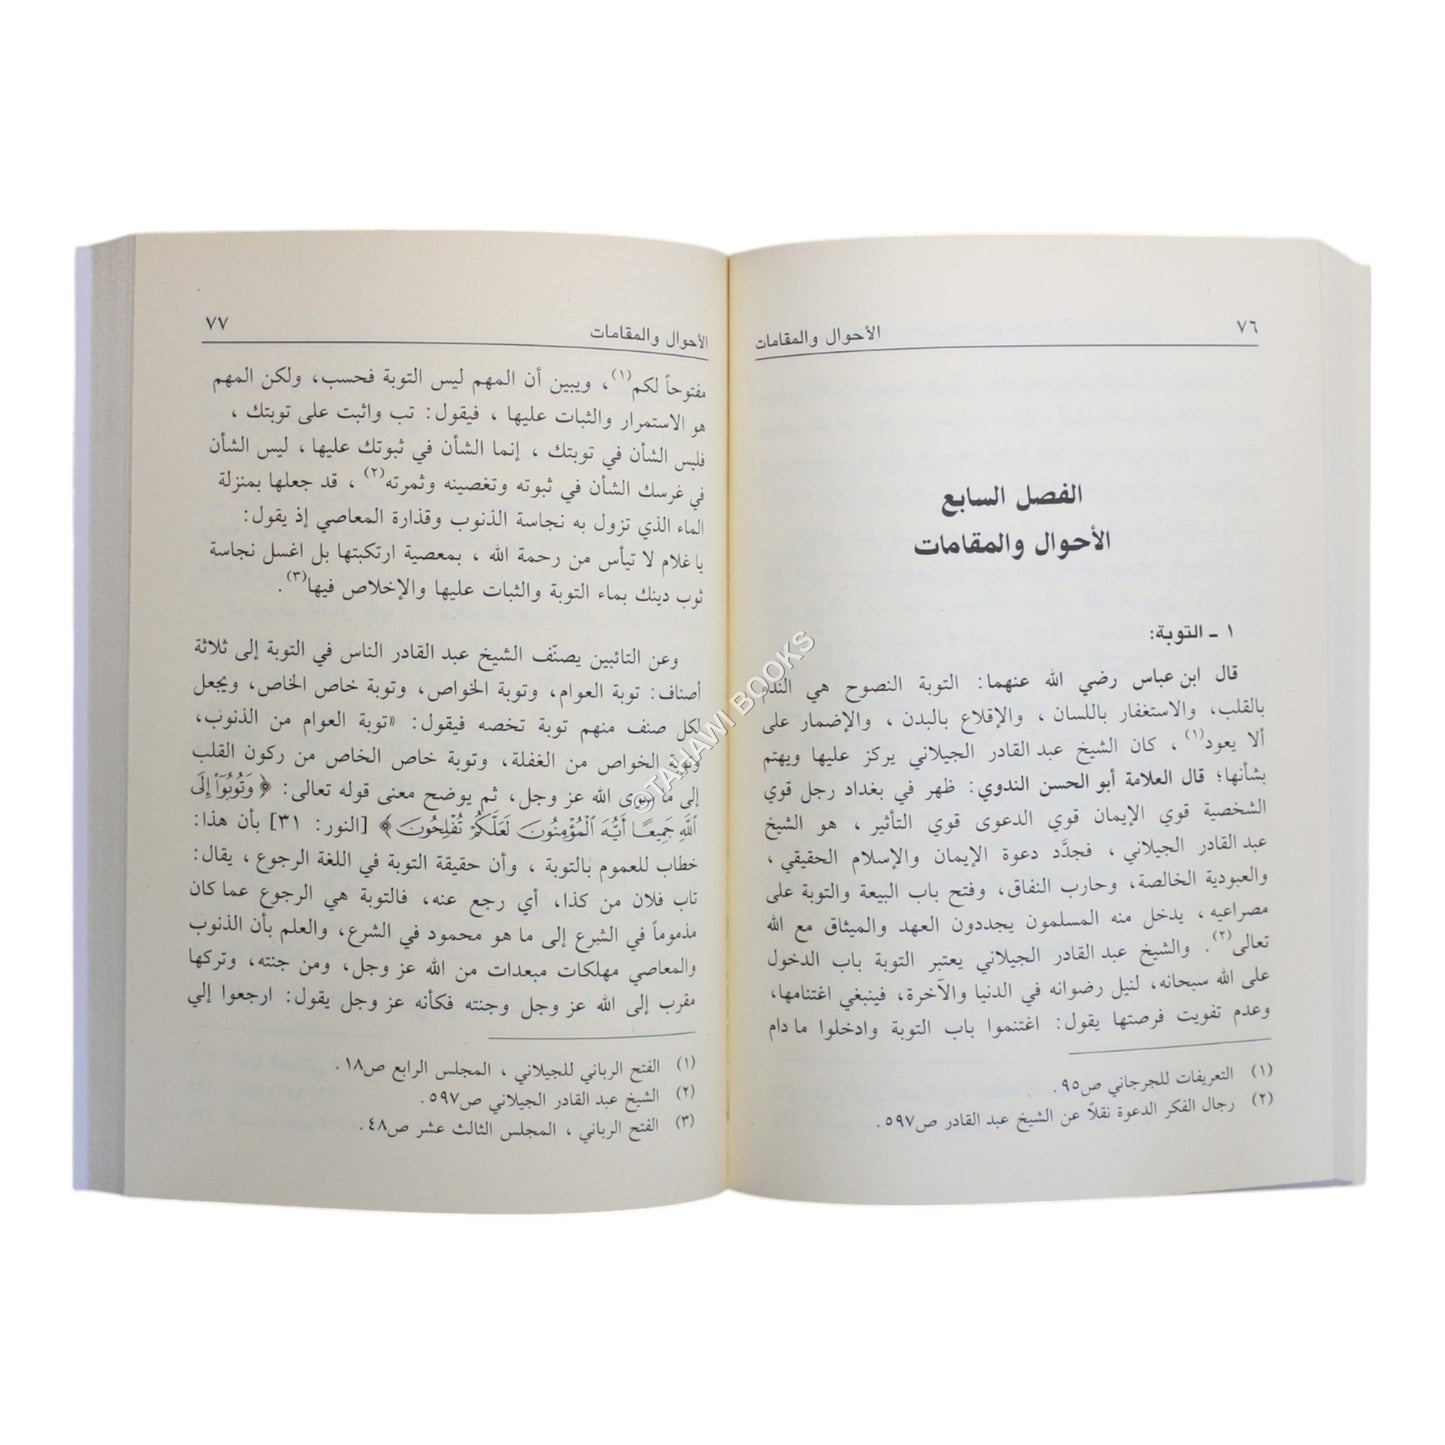 ٧٦
الأحوال والمقامات
الفصل السابع
الأحوال والمقامات
١ ـ التوبة:
قال ابن عباس رضي الله عنهما: التوبة النصوح هي الندم
بالقلب، والاستغفار باللسان، والإقلاع بالبدن، والإضمار على
ألا يعود(١)، كان الشيخ عبد القادر الجيلاني يركز عليها ويهتم
بشأنها؛ قال العلامة أبو الحسن الندوي: ظهر في بغداد رجل قوي
الشخصية قوي الإيمان قوي الدعوى قوي التأثير، هو الشيخ
عبد القادر الجيلاني، فجدَّد دعوة الإيمان والإسلام الحقيقي،
والعبودية الخالصة، وحارب النفاق، وفتح باب البيعة والتوبة على
مصراعيه، يدخل منه المسلمون يجددون العهد والميثاق مع الله
تعالى(٢). والشيخ عبد القادر الجيلاني يعتبر التوبة باب الدخول
على الله سبحانه، لنيل رضوانه في الدنيا والآخرة، فينبغي اغتنامها،
وعدم تفويت فرصتها يقول: اغتنموا باب التوبة وادخلوا ما دام
(١) التعريفات للجرجاني ص٩٥.
(٢) رجال الفكر الدعوة نقلاً عن الشيخ عبد القادر ص٥٩٧.
الأحوال والمقامات
٧٧
مفتوحاً لكم(١)، ويبين أن المهم ليس التوبة فحسب، ولكن المهم
هو الاستمرار والثبات عليها، فيقول: تب واثبت على توبتك،
فليس الشأن في توبتك، إنما الشأن في ثبوتك عليها، ليس الشأن
في غرسك الشأن في ثبوته وتغصينه وثمرته(٢)، قد جعلها بمنزلة
الماء الذي تزول به نجاسة الذنوب وقذارة المعاصي إذ يقول:
يا غلام لا تيأس من رحمة الله، بمعصية ارتكبتها بل اغسل نجاسة
ثوب دينك بماء التوبة والثبات عليها والإخلاص فيها(٣).
وعن التائبين يصنّف الشيخ عبد القادر الناس في التوبة إلى ثلاثة
أصناف: توبة العوام، وتوبة الخواص، وتوبة خاص الخاص، ويجعل
لكل صنف منهم توبة تخصه فيقول: «توبة العوام من الذنوب،
وتوبة الخواص من الغفلة، وتوبة خاص الخاص من ركون القلب
إلى ما سوى الله عز وجل، ثم يوضح معنى قوله تعالى: ﴿وَتُوبُوٓاْ إِلَى
ٱللَّهِ جَمِيعًا أَيُّهَ ٱلْمُؤْمِنُونَ لَعَلَّكُمْ تُفْلِحُونَ﴾ [النور: ٣١] بأن هذا:
خطاب للعموم بالتوبة، وأن حقيقة التوبة في اللغة الرجوع، يقال:
تاب فلان من كذا، أي رجع عنه، فالتوبة هي الرجوع عما كان
مذموماً في الشرع إلى ما هو محمود في الشرع، والعلم بأن الذنوب
والمعاصي مهلكات مبعدات من الله عز وجل، ومن جنته، وتركها
مقرب إلى الله عز وجل وجنته فكأنه عز وجل يقول: ارجعوا إلي
(١) الفتح الرباني للجيلاني، المجلس الرابع ص١٨.
(٢) الشيخ عبد القادر الجيلاني ص٥٩٧.
(٣) الفتح الرباني، المجلس الثالث عشر ص٤٨.
©TAHAWI BOOKS